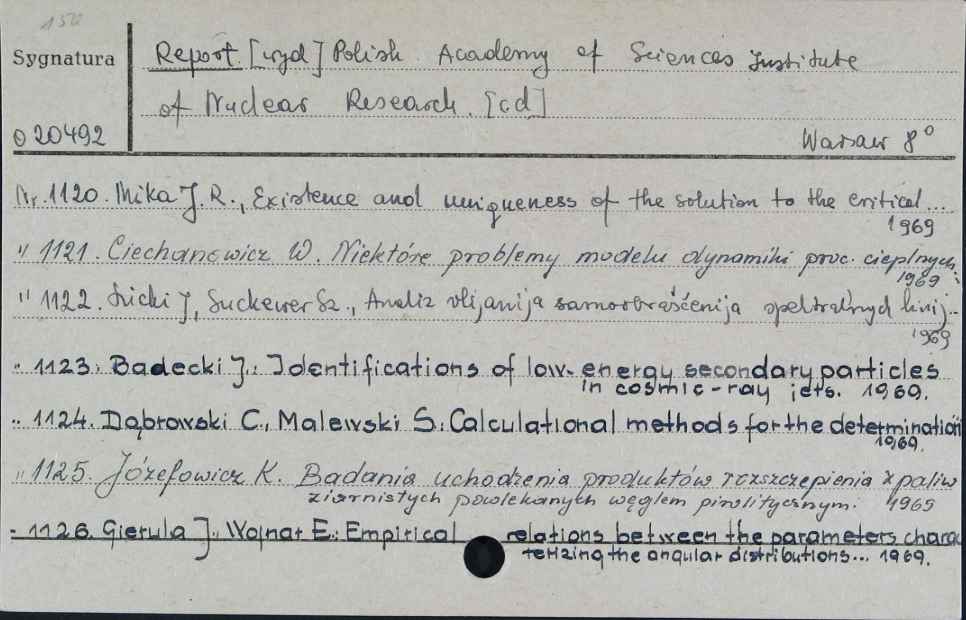 150
Sygnatura
Report. [wyd] Polish Academy of Sciences Institute
of Nuclear Research. [cd]
O 20492
Warsaw 8°
Nr. 1120. Mika J. R., Existence and uniqueness of the solution to the critical...
1969
" 1121. Ciechanowicz W. Niektóre problemy modelu dynamiki proc. cieplnych.
1969
" 1122. J, Suckewer Sz., Analiz vlijanija samoobraščenija spektralnych linij..
1969
" 1123. Badecki J.: Identifications of low-energy secondary particles
in cosmic-ray jets. 1969.
" 1124. Dąbrowski C., Malewski S. Calculational methods for the determination
1969.
" 1125. Józefowicz K. Badania uchodzenia produktów rozszczepienia z paliw
ziarnistych powlekanych węglem pirolitycznym. 1969
" 1126. Gierula J., Wojnar E.: Empirical relations between the parameters charac
terizing the angular distributions... 1969.